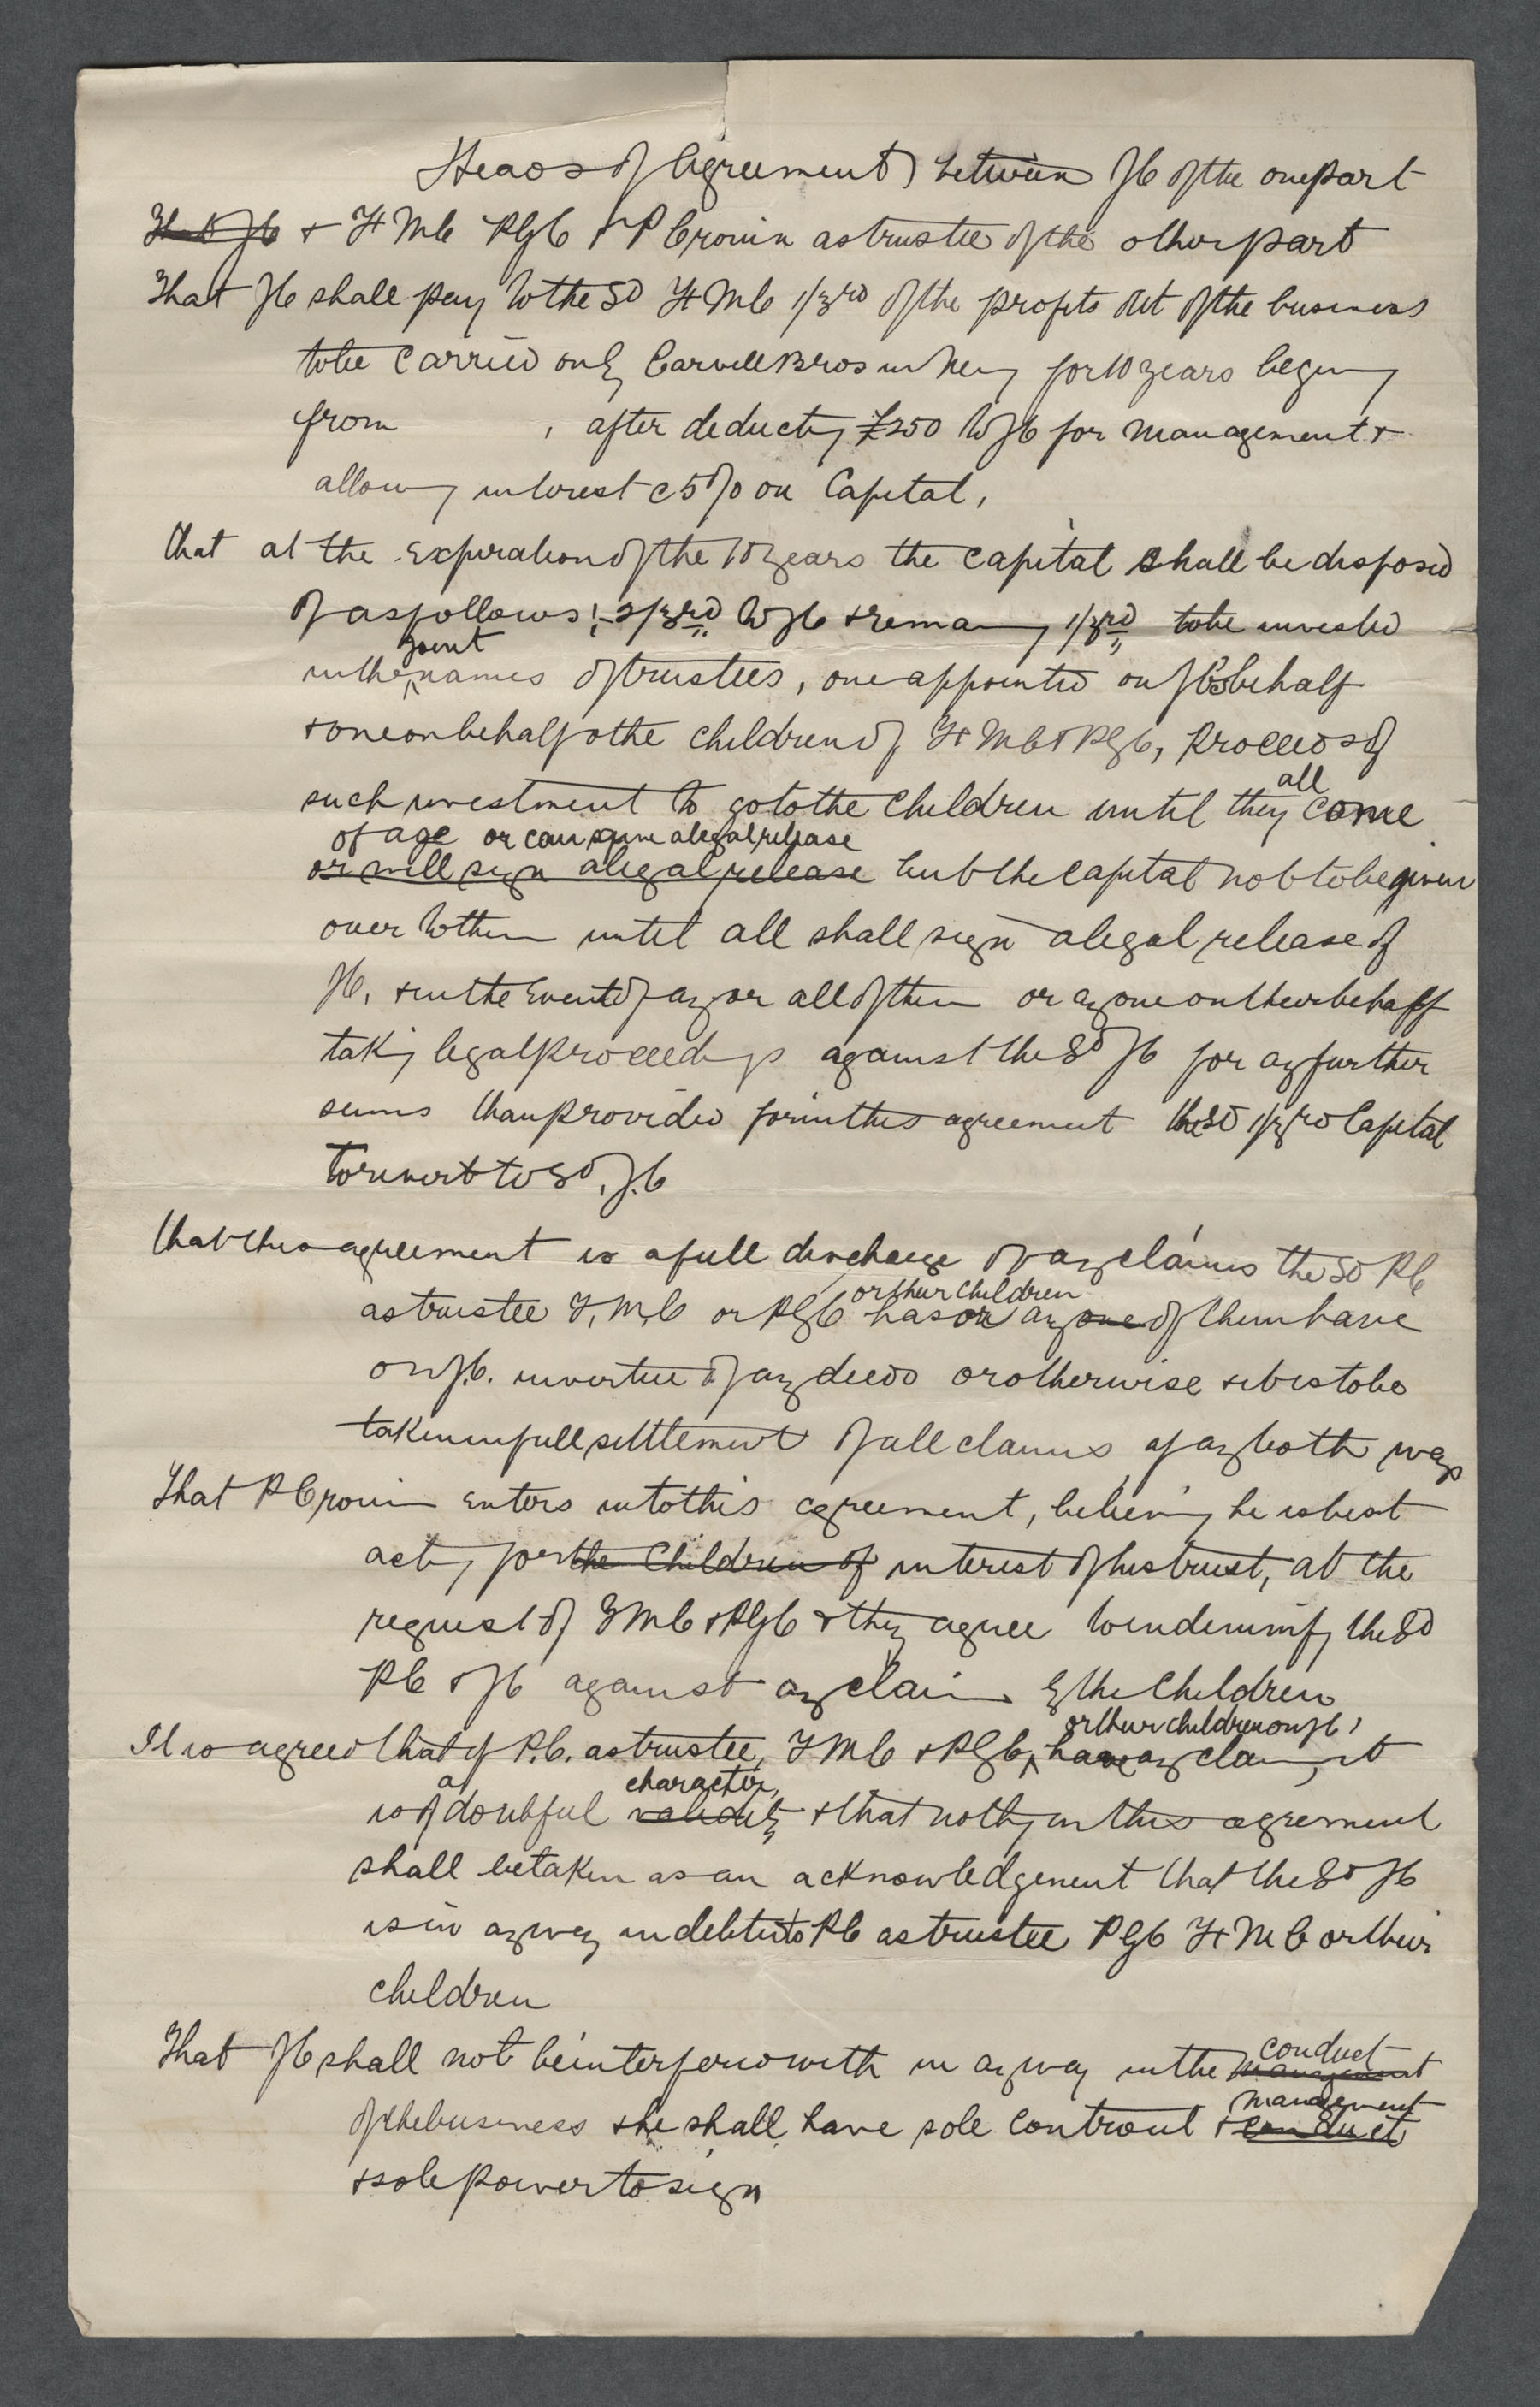 Heads of Agreement between JC of the one part
That JC & F Mc PGC & P Cronin as trustee of the other part
That JC shall pay to the Sd F Mc 1/3rd of the profits net of the business
to be carried on by Carvell Bros in Newy for 10 years beging
from , after deducting £250 to JC for management &
allowing interest @ 5% on Capital,
that at the expiration of the 10 years the capital shall be disposed
of as follows:- 2/3rd to JC & remaing 1/3rd to be invested
joint
in the names of trustees, one appointed on JC's behalf
& one on behalf o the children of F Mc & PGC, Proceeds of
all
such investment to go to the children until they come
of age or can give a legal release
or will sign a legal release but the Capital not to be given
over to them until all shall sign a legal release of
JC, & in the event of any or all of them or any one on their behalf
taking legal proceedings against the Sd JC for any further
sums than provided for in this agreement the Sd 1/3rd Capital
to revert to Sd. J.C
that this agreement is a full discharge of any claims the Sd PC
or their children
as trustee F. M. C or PGC has or any one of them have
on J.C. in vertue of any deeds or otherwise & it is to be
taken in full settlement of all claims if any both ways
That P Cronin enters into this agreement, believing he is best
acting for the Children of interest of his trust, at the
request of F Mc & PGC & they agree to indemnify the Sd
PC & JC against any claim by the Children
or their children on JC,
It is agreed that if P.C. as trustee, F Mc & PGC, have any claim, it
a character,
is of doubtful validity & that nothing in this agreement
shall be taken as an acknowledgement that the Sd JC
is in any way indebted to PC as trustee PGC F Mc or their
children
conduct
That JC shall not be interfered with in any way in the management
management
of the business & he shall have sole controul & conduct
& sole power to sign